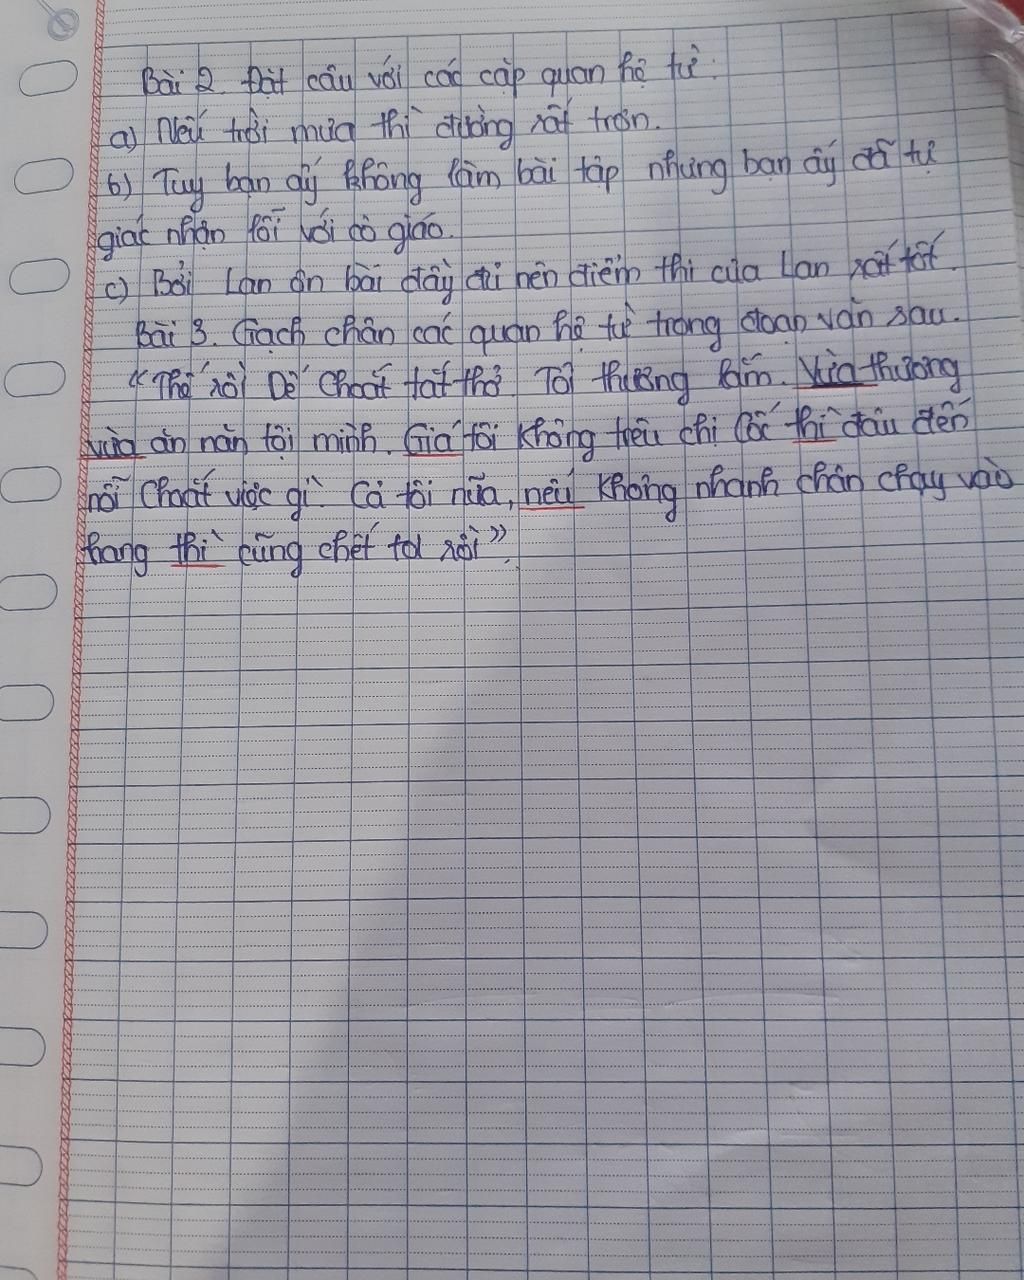 Bài 2. Đặt câu với các cặp quan hệ từ.
a) Nếu trời mưa thì đường rất trơn.
b) Tuy bạn ấy không làm bài tập nhưng bạn ấy đã tự
giác nhận lỗi với cô giáo.
c) Bởi Lan ôn bài đầy đủ nên điểm thi của Lan rất tốt.
Bài 3. Gạch chân các quan hệ từ trong đoạn văn sau.
"Thế rồi Dế Choắt tắt thở. Tôi thương lắm. Vừa thương
vừa ăn năn tội mình. Giá tôi không trêu chị Cốc thì đâu đến
nỗi Choắt việc gì. Cả tôi nữa, nếu không nhanh chân chạy vào
hang thì cũng chết toi rồi".